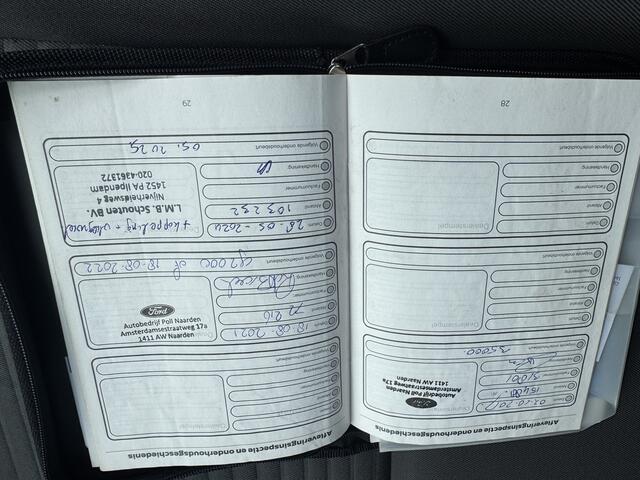 Afleveringsinspectie en onderhoudsgeschiedenis
Datum
02-10-2017
Afstand
Factuurnummer
Handtekening
Volgende onderhoudsbeurt
35000
Dealerstempel
Ford
Autobedrijf Poll Naarden
Amsterdamsestraatweg 17a
1411 AW Naarden
Datum
Afstand
Factuurnummer
Handtekening
Volgende onderhoudsbeurt
Dealerstempel
Datum
Afstand
Factuurnummer
Handtekening
Volgende onderhoudsbeurt
Dealerstempel
28
Afleveringsinspectie en onderhoudsgeschiedenis
Datum
Afstand
Factuurnummer
Handtekening
Volgende onderhoudsbeurt
Datum
18-08-2021
Afstand
72 210
Factuurnummer
Handtekening
Volgende onderhoudsbeurt
92000 of 18-08-2022
Ford
Autobedrijf Poll Naarden
Amsterdamsestraatweg 17a
1411 AW Naarden
Datum
28-05-2024
Afstand
103232
Factuurnummer
Handtekening
Volgende onderhoudsbeurt
05.2025
+ koppeling + vliegwiel
L.M.B. Schouten BV.
Nijverheidsweg 4
1452 PA Ilpendam
020-4361372
29